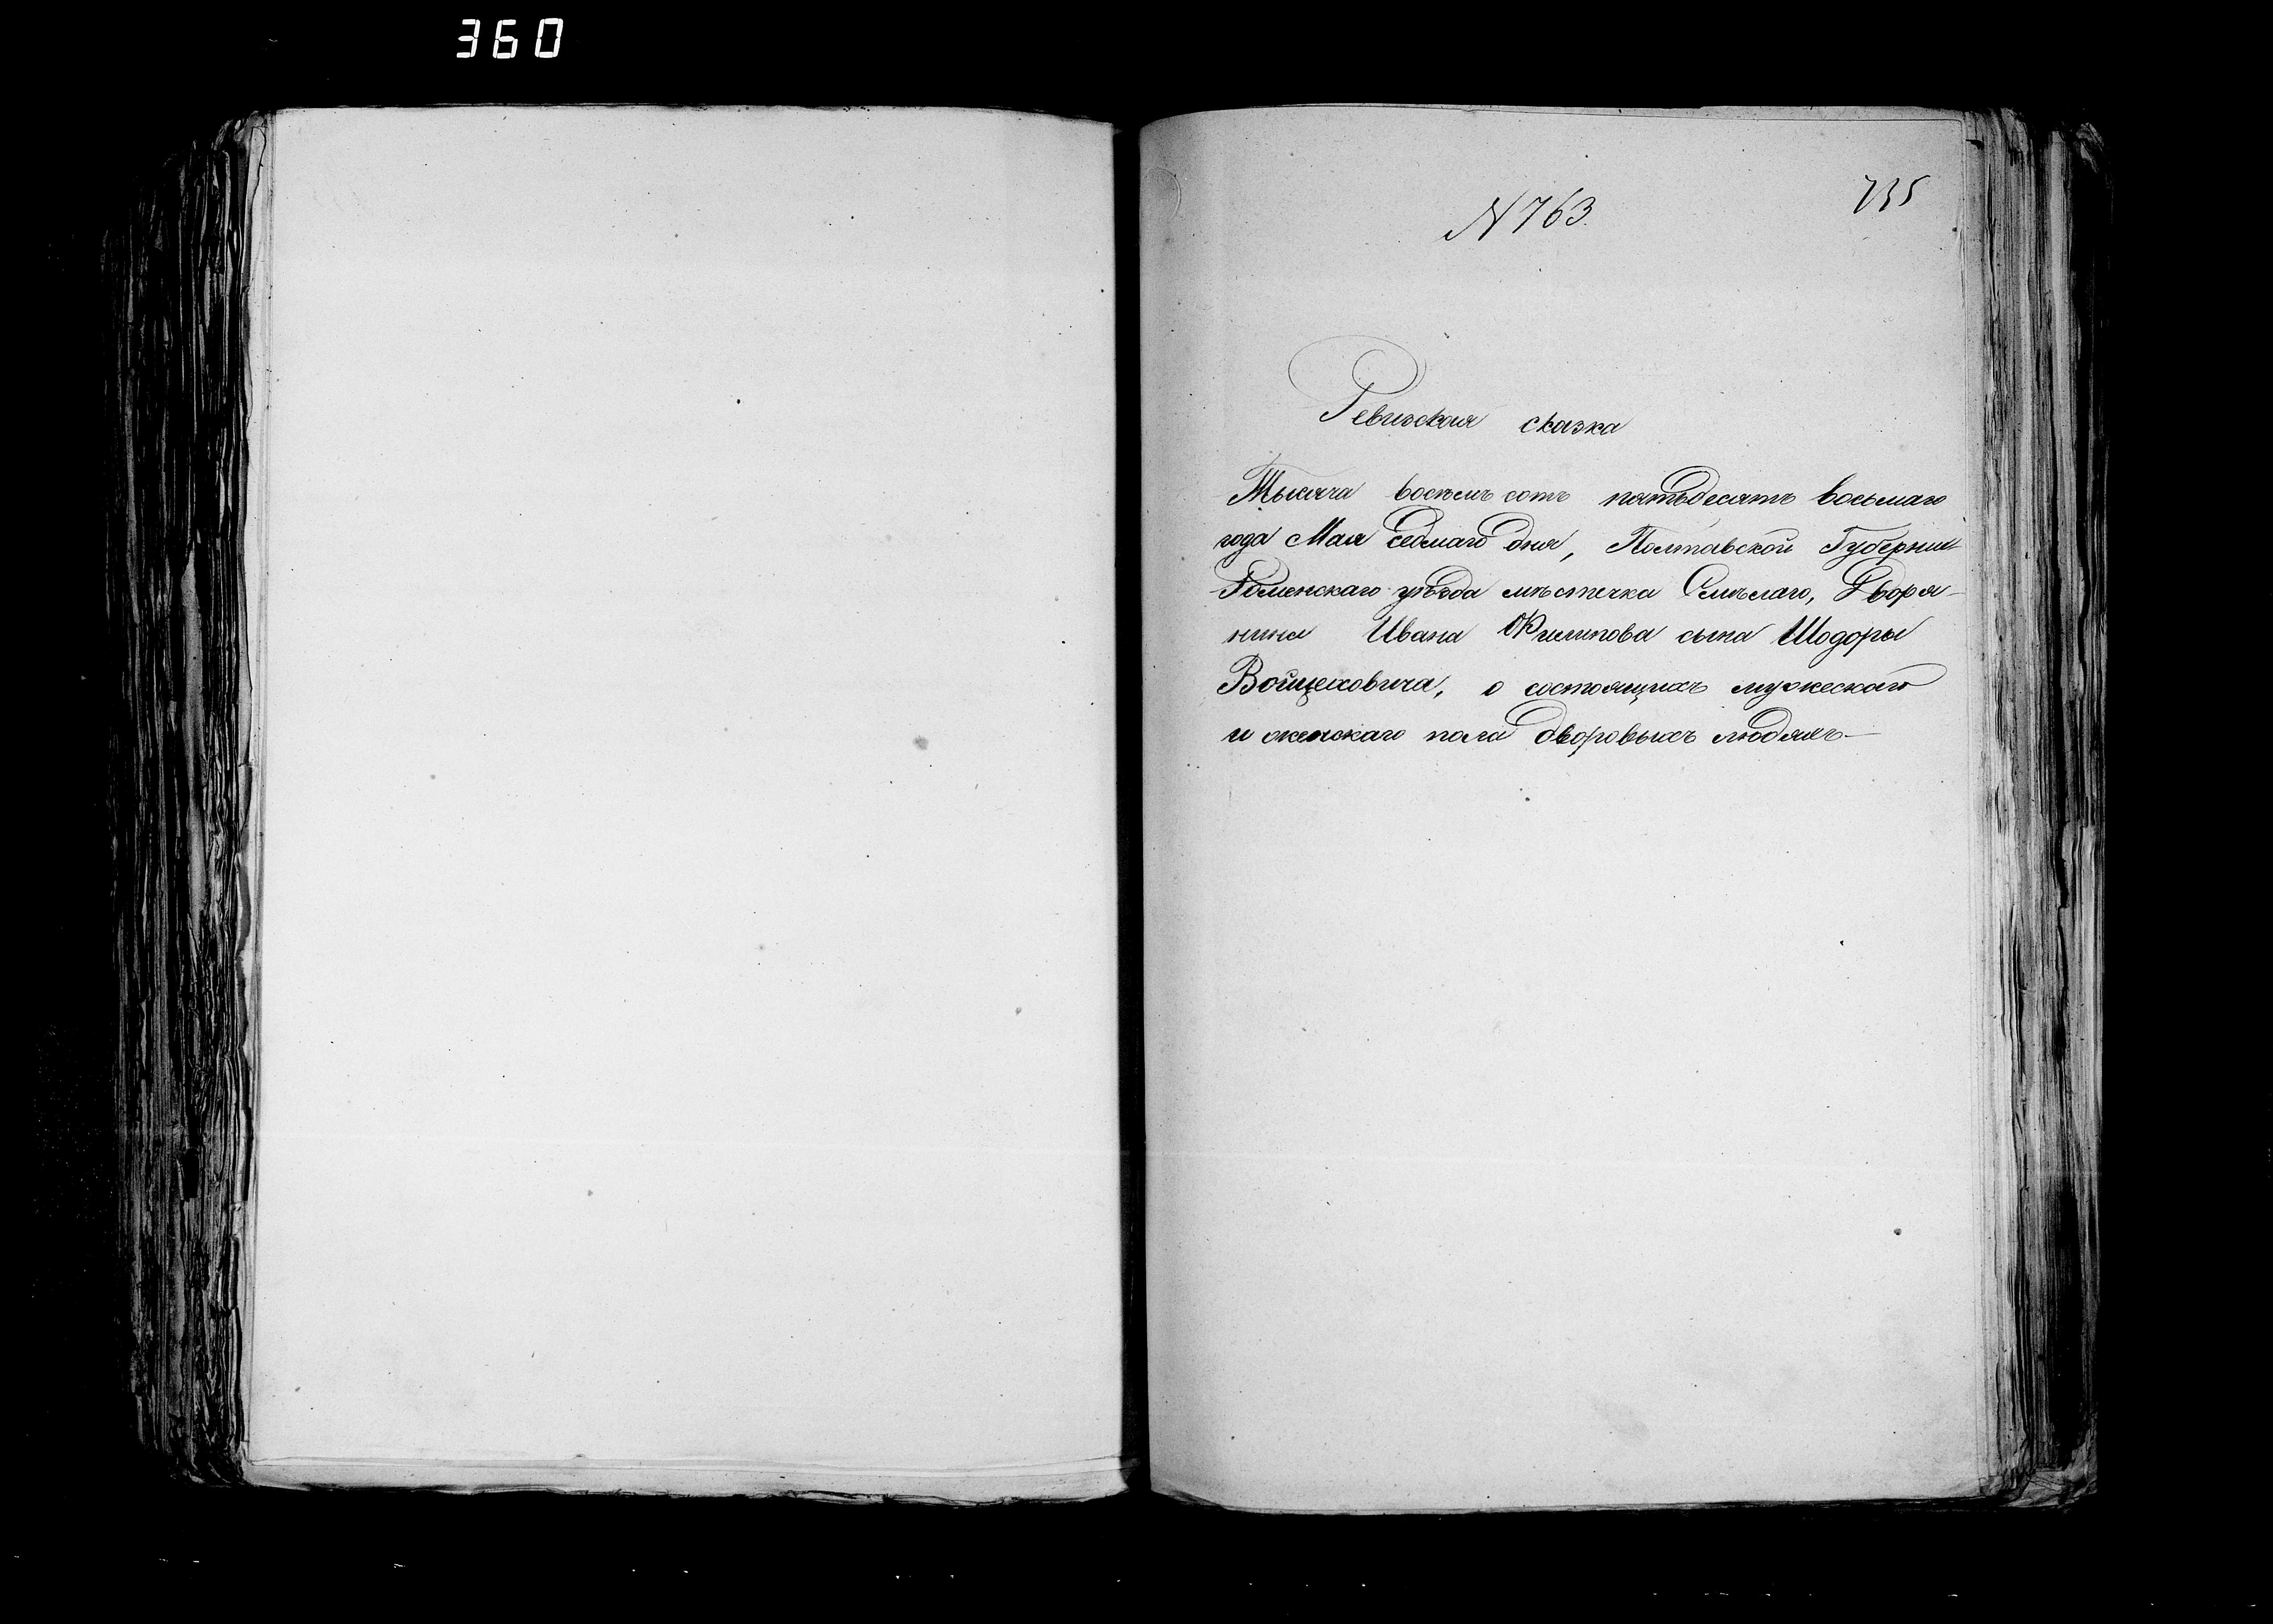 360
N 763.
735
Ревизская сказка
Тысяча восемь сотъ пятьдесятъ восьмаго
года Мая седмаго дня, Полтавской Губерніи
Роменскаго уѣзда мѣстечка Смѣлаго, Дворя-
нина Ивана Филипова сына Шодоры
Войцеховича, о состоящихъ мужескаго
и женскаго пола дворовыхъ людяхъ—